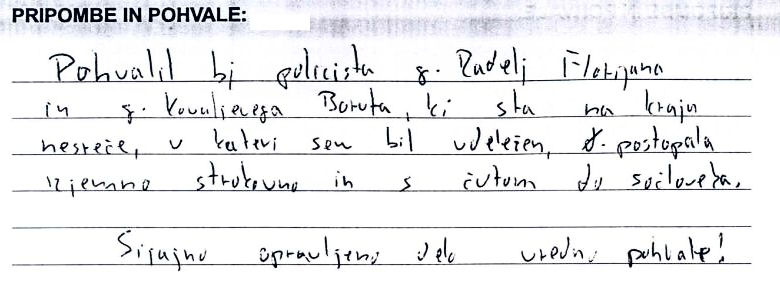 PRIPOMBE IN POHVALE:
Pohvalil bi policista g. Radelj Florijana
in g. Kovaljevega Boruta, ki sta na kraju
nesreče, v kateri sem bil udeležen, postopala
izjemno strokovno in s čutom do sočloveka.
Sijajno opravljeno delo vredno pohvale!